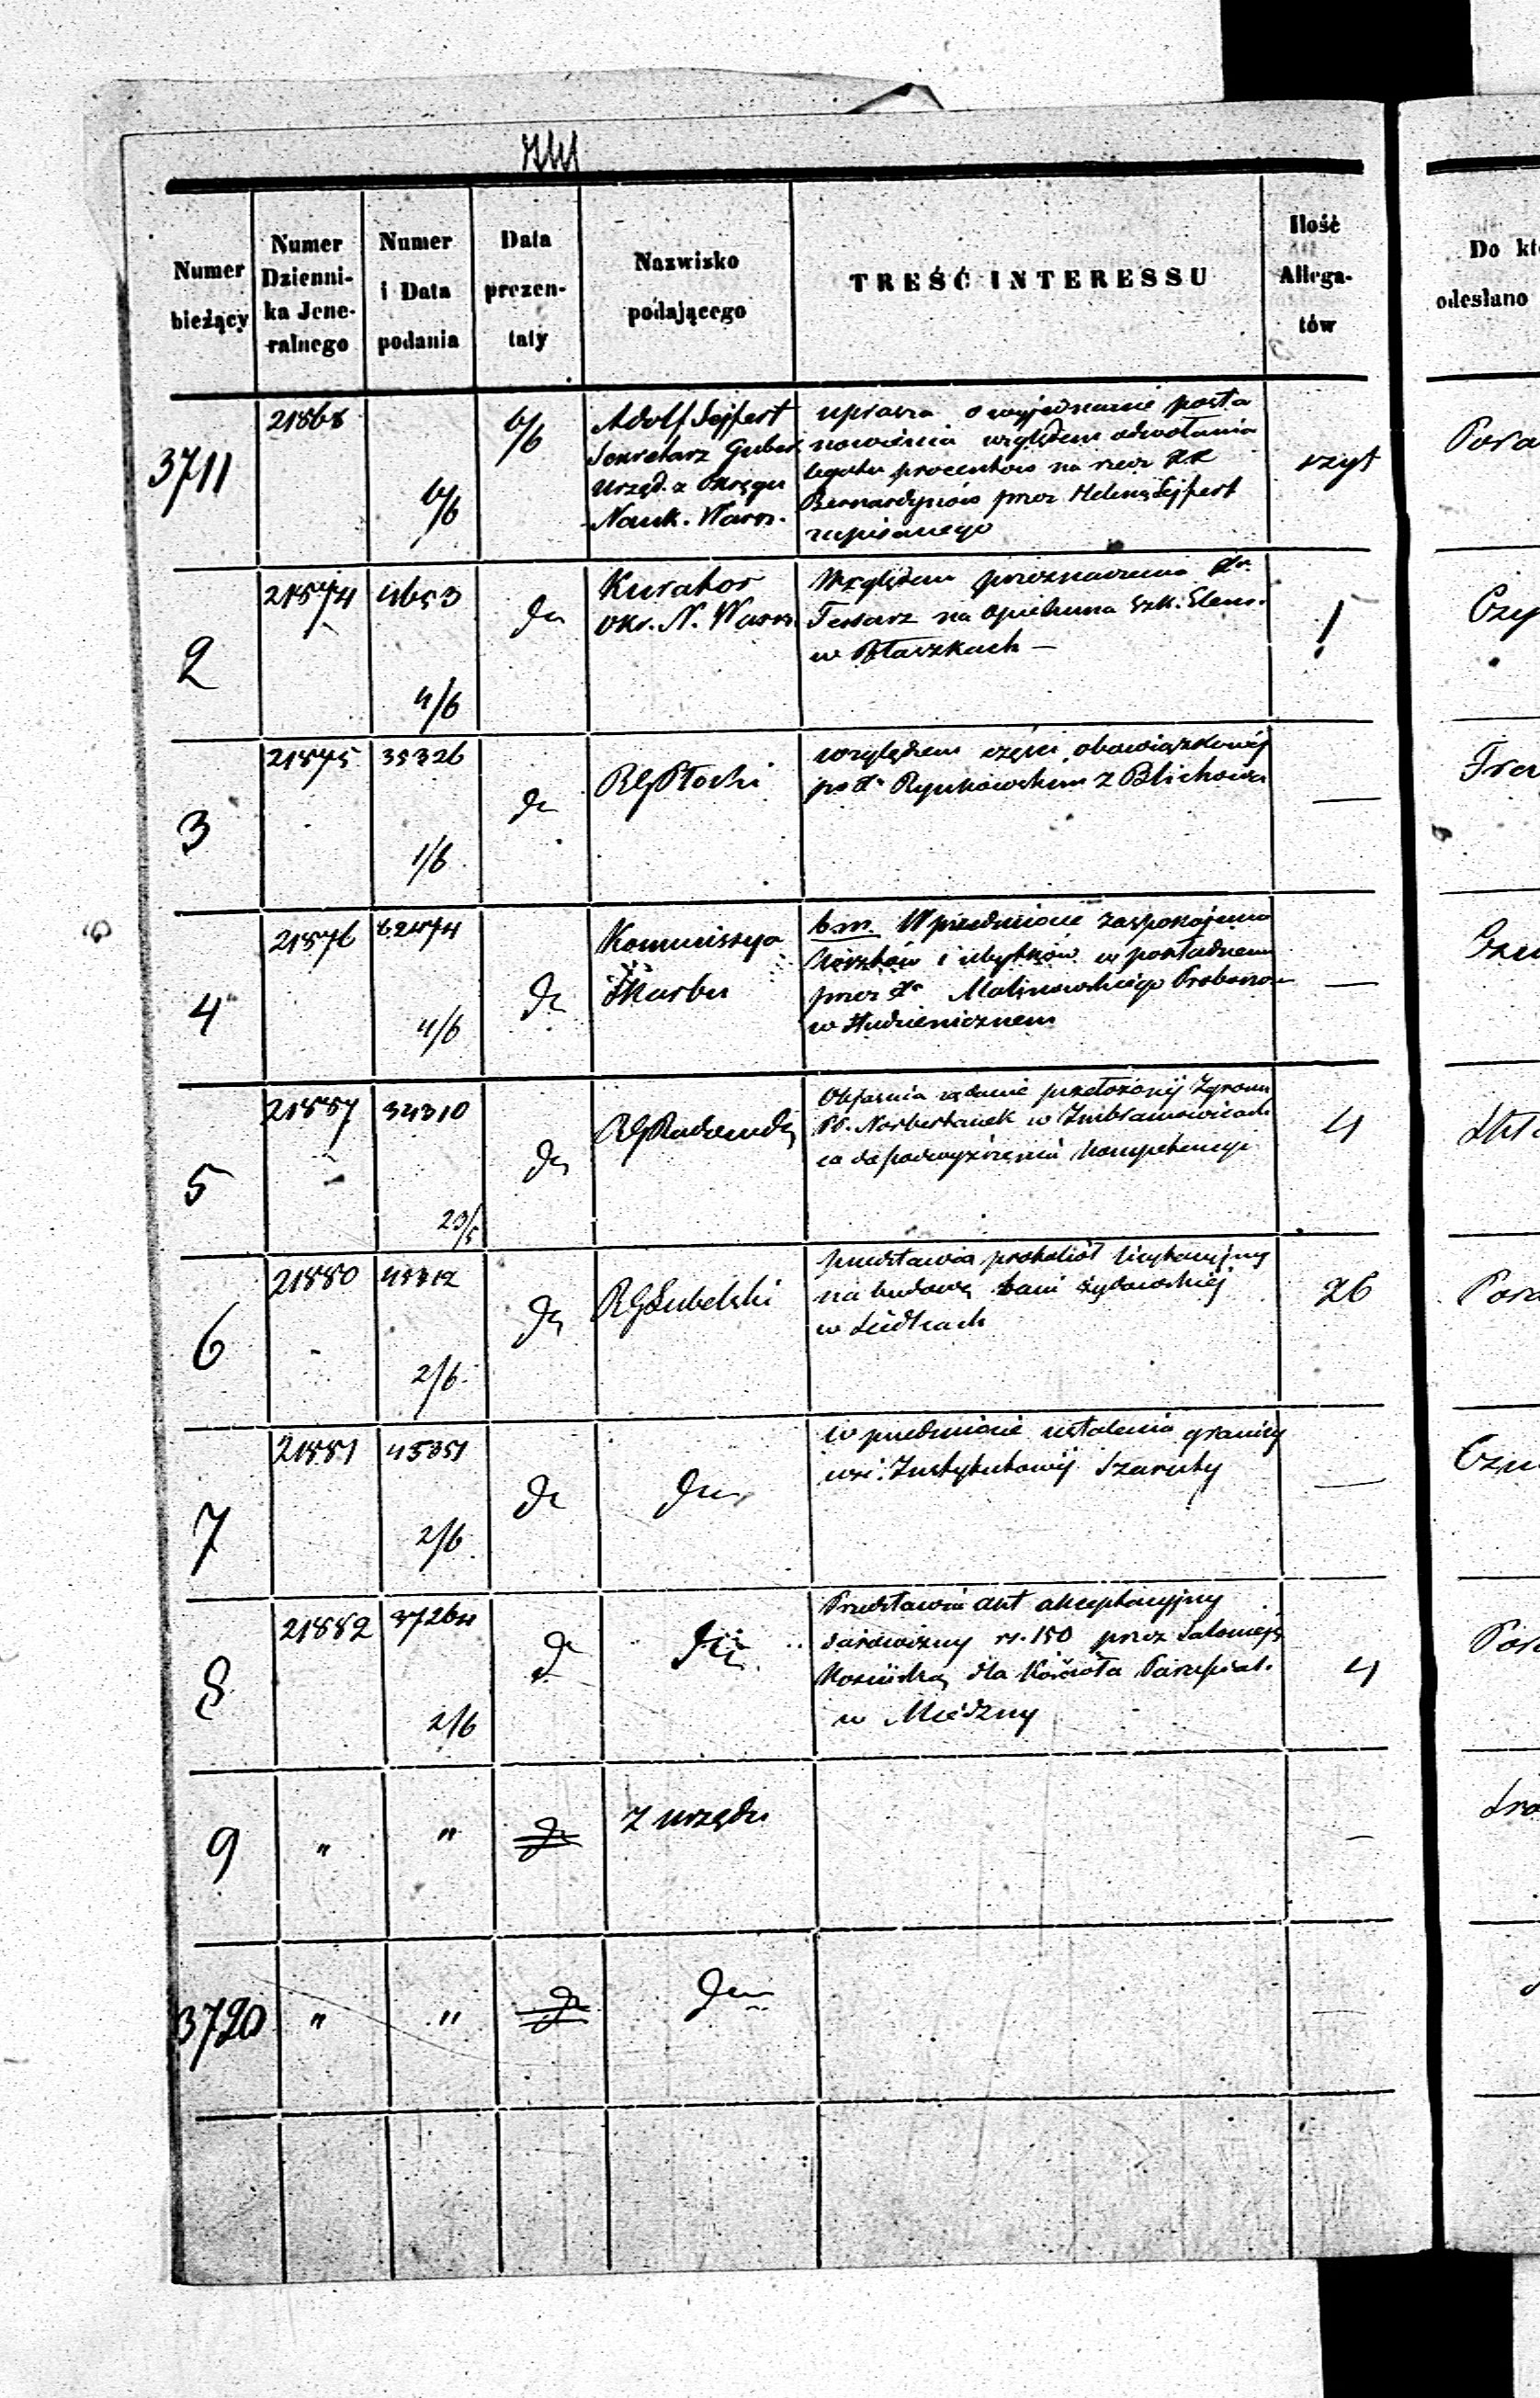 Numer bieżący
Numer Dzienni-
ka Jene-
ralnego
Numer i Data podania
Data prezen-
taty
Nazwisko podającego
TREŚĆ INTERESSU
Ilość Allega-
tów
Do kt
odesłano
3711
21868
6/6
6/6
Adolf Sejfert
Sekretarz Guber
Urzęd. z Okręgu
Nauk. Warsz.
uprasza o wyjednanie posta
nowienia względem odwołania
legatu procentów na rzecz XX
Bernardynów przez Helenę Sejfert
zapisanego
szyt
Pora
2
21874
4653
4/6
do
Kurator
Okr. N. Warsz.
Względem przeznaczenia Xa.
Tessarz na Opiekuna Szk. Elem.
w Płaszkach —
1
Czy
3
21875
35326
1/6
do
RGPłocki
względem części obowiązkowéj
po Xu Rynkowskim z Blichowa
—
4
21876
62474
4/6
do
Kommissya
Skarbu
b.m. W przedmiocie zaspokojenia
kosztów i ubytków w
przez Xa Malinowskiego Proboszcza
w Studzienicznem
—
5
21887
34310
23/5
do
RGRadomski
Objaśnia żądanie przełożonéj Zgrom
PP. Norbertanek w Imbramowicach
co do podwyższenia kompetencyi
4
6
21880
45312
2/6
do
RGLubelski
przedstawia protokół licytacyjny
na budowę łaźni żydowskiéj
w Siedlcach
26
Pora
7
21881
45351
2/6
do
do
w przedmiocie ustalenia granicy
wsi Instytutowéj Szaruty
—
8
21882
37264
2/6
do
do
Przedstawia akt akceptacyjny
darowizny rs. 150 przez Salomeję
Kosińską dla Kościoła Parafial.
w Miedzny
4
Por
9
"
"
do
Z urzędu
—
3720
"
"
do
do
—